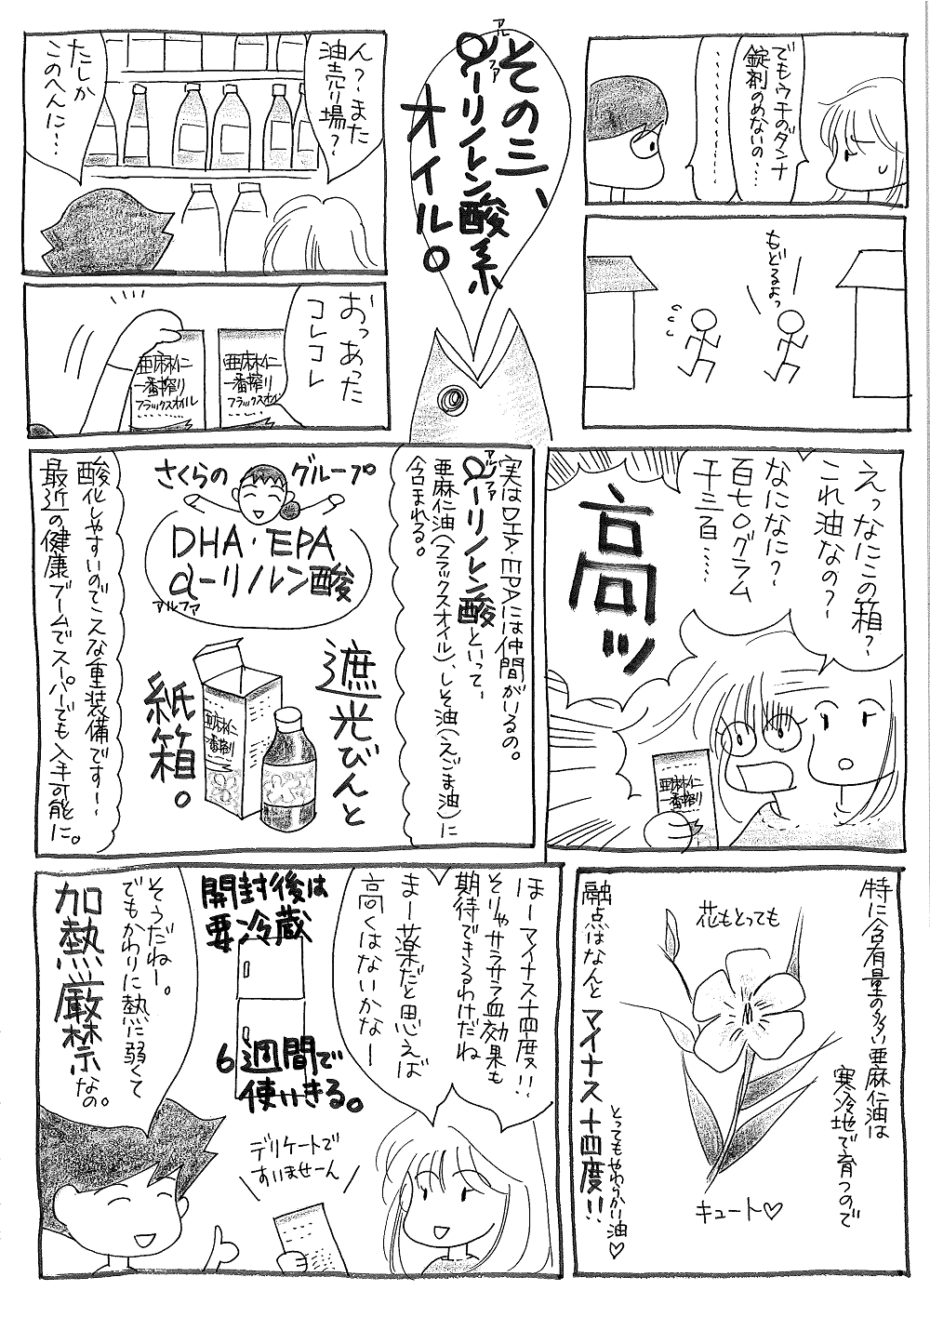 でもウチのダンナ
錠剤のめないの…
………
もどるよっ
その三、
α-リノレン酸系
アルファ
オイル。
ん？また
油売り場？
たしか
このへんに…
おっあった
コレコレ
亜麻仁
一番搾り
フラックスオイル
亜麻仁
一番搾り
フラックスオイル
えっなにこの箱？
これ油なの？
なになに？
百七〇グラム
千三百……
高ッ
亜麻仁
一番搾り
実はDHA・EPAには仲間がいるの。
α-リノレン酸といって、
アルファ
亜麻仁油（フラックスオイル）、しそ油（えごま油）に
含まれる。
さくらのグループ
DHA・EPA
α-リノレン酸
アルファ
遮光びんと
紙箱。
亜麻仁
一番搾り
酸化しやすいのでこんな重装備です！
最近の健康ブームでスーパーでも入手可能に。
特に含有量の多い亜麻仁油は
寒冷地で育つので
花もとっても
キュート♡
融点はなんとマイナス十四度!!
とってもやわらかい油♡
ほーマイナス十四度!!
そりゃサラサラ血効果も
期待できるわけだね
まー薬だと思えば
高くはないかなー
開封後は
要冷蔵
6週間で
使いきる。
デリケートで
すいませーん
そうだねー。
でもかわりに熱に弱くて
加熱厳禁なの。